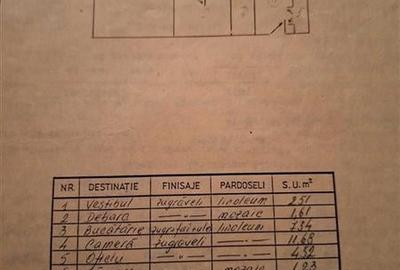 NR. DESTINAȚIE FINISAJE PARDOSELI S.U. m²
1 Vestibul zugrăveli linoleum 2,51
2 Debara —"— mozaic 1,61
3 Bucătărie linoleum 7,34
4 Cameră zugrăveli —"— 11,68
5 Oficiu —"— —"— 4,52
mozaic 1,93